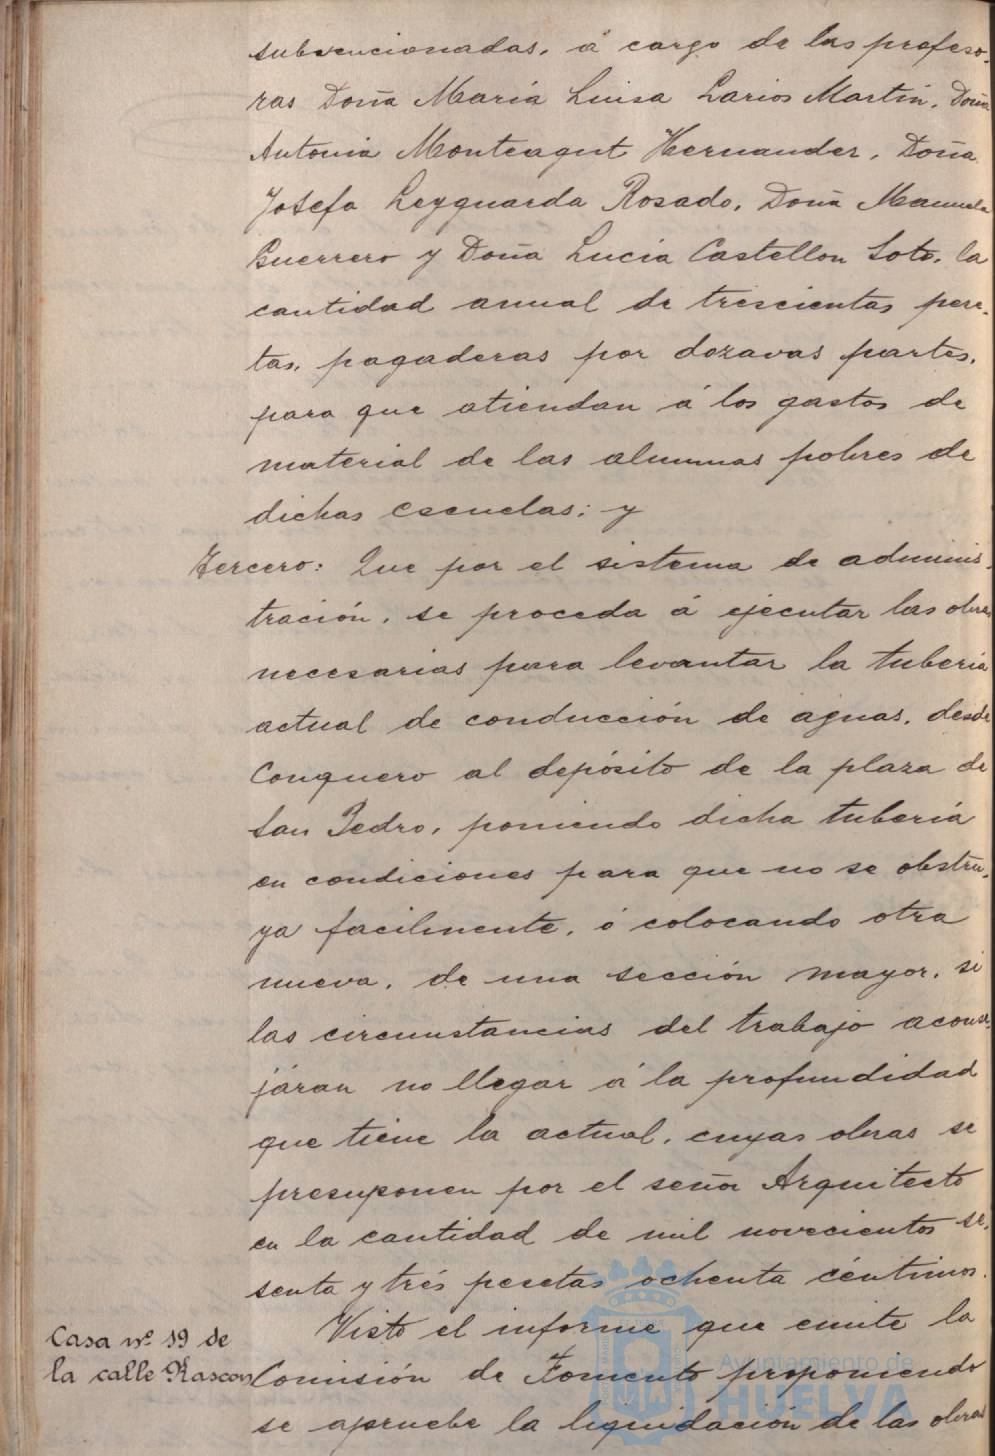 subvencionadas, á cargo de las profeso-
ras Doña María Luisa Larios Martín, Doña
Antonia Monteagut Hernander, Doña
Josefa Leyguarda Rosado, Doña Manuela
Guerrero y Doña Lucía Castellon Soto, la
cantidad anual de trescientas pese-
tas, pagaderas por dozavas partes,
para que atiendan á los gastos de
material de las alumnas pobres de
dichas escuelas; y
Tercero: Que por el sistema de adminis-
tración, se proceda á ejecutar las obras
necesarias para levantar la tubería
actual de conducción de aguas, desde
Conquero al depósito de la plaza de
San Pedro, poniendo dicha tubería
en condiciones para que no se obstru-
ya facilmente, ó colocando otra
nueva, de una sección mayor, si
las circunstancias del trabajo aconse-
járan no llegar á la profundidad
que tiene la actual, cuyas obras se
presuponen por el señor Arquitecto
en la cantidad de mil novecientos se-
senta y trés pesetas ochenta céntimos.
Casa nº 19 de
la calle Rascon
Visto el informe que emite la
Comisión de Fomento proponiendo
se apruebe la liquidación de las obras
Ayuntamiento de
HUELVA